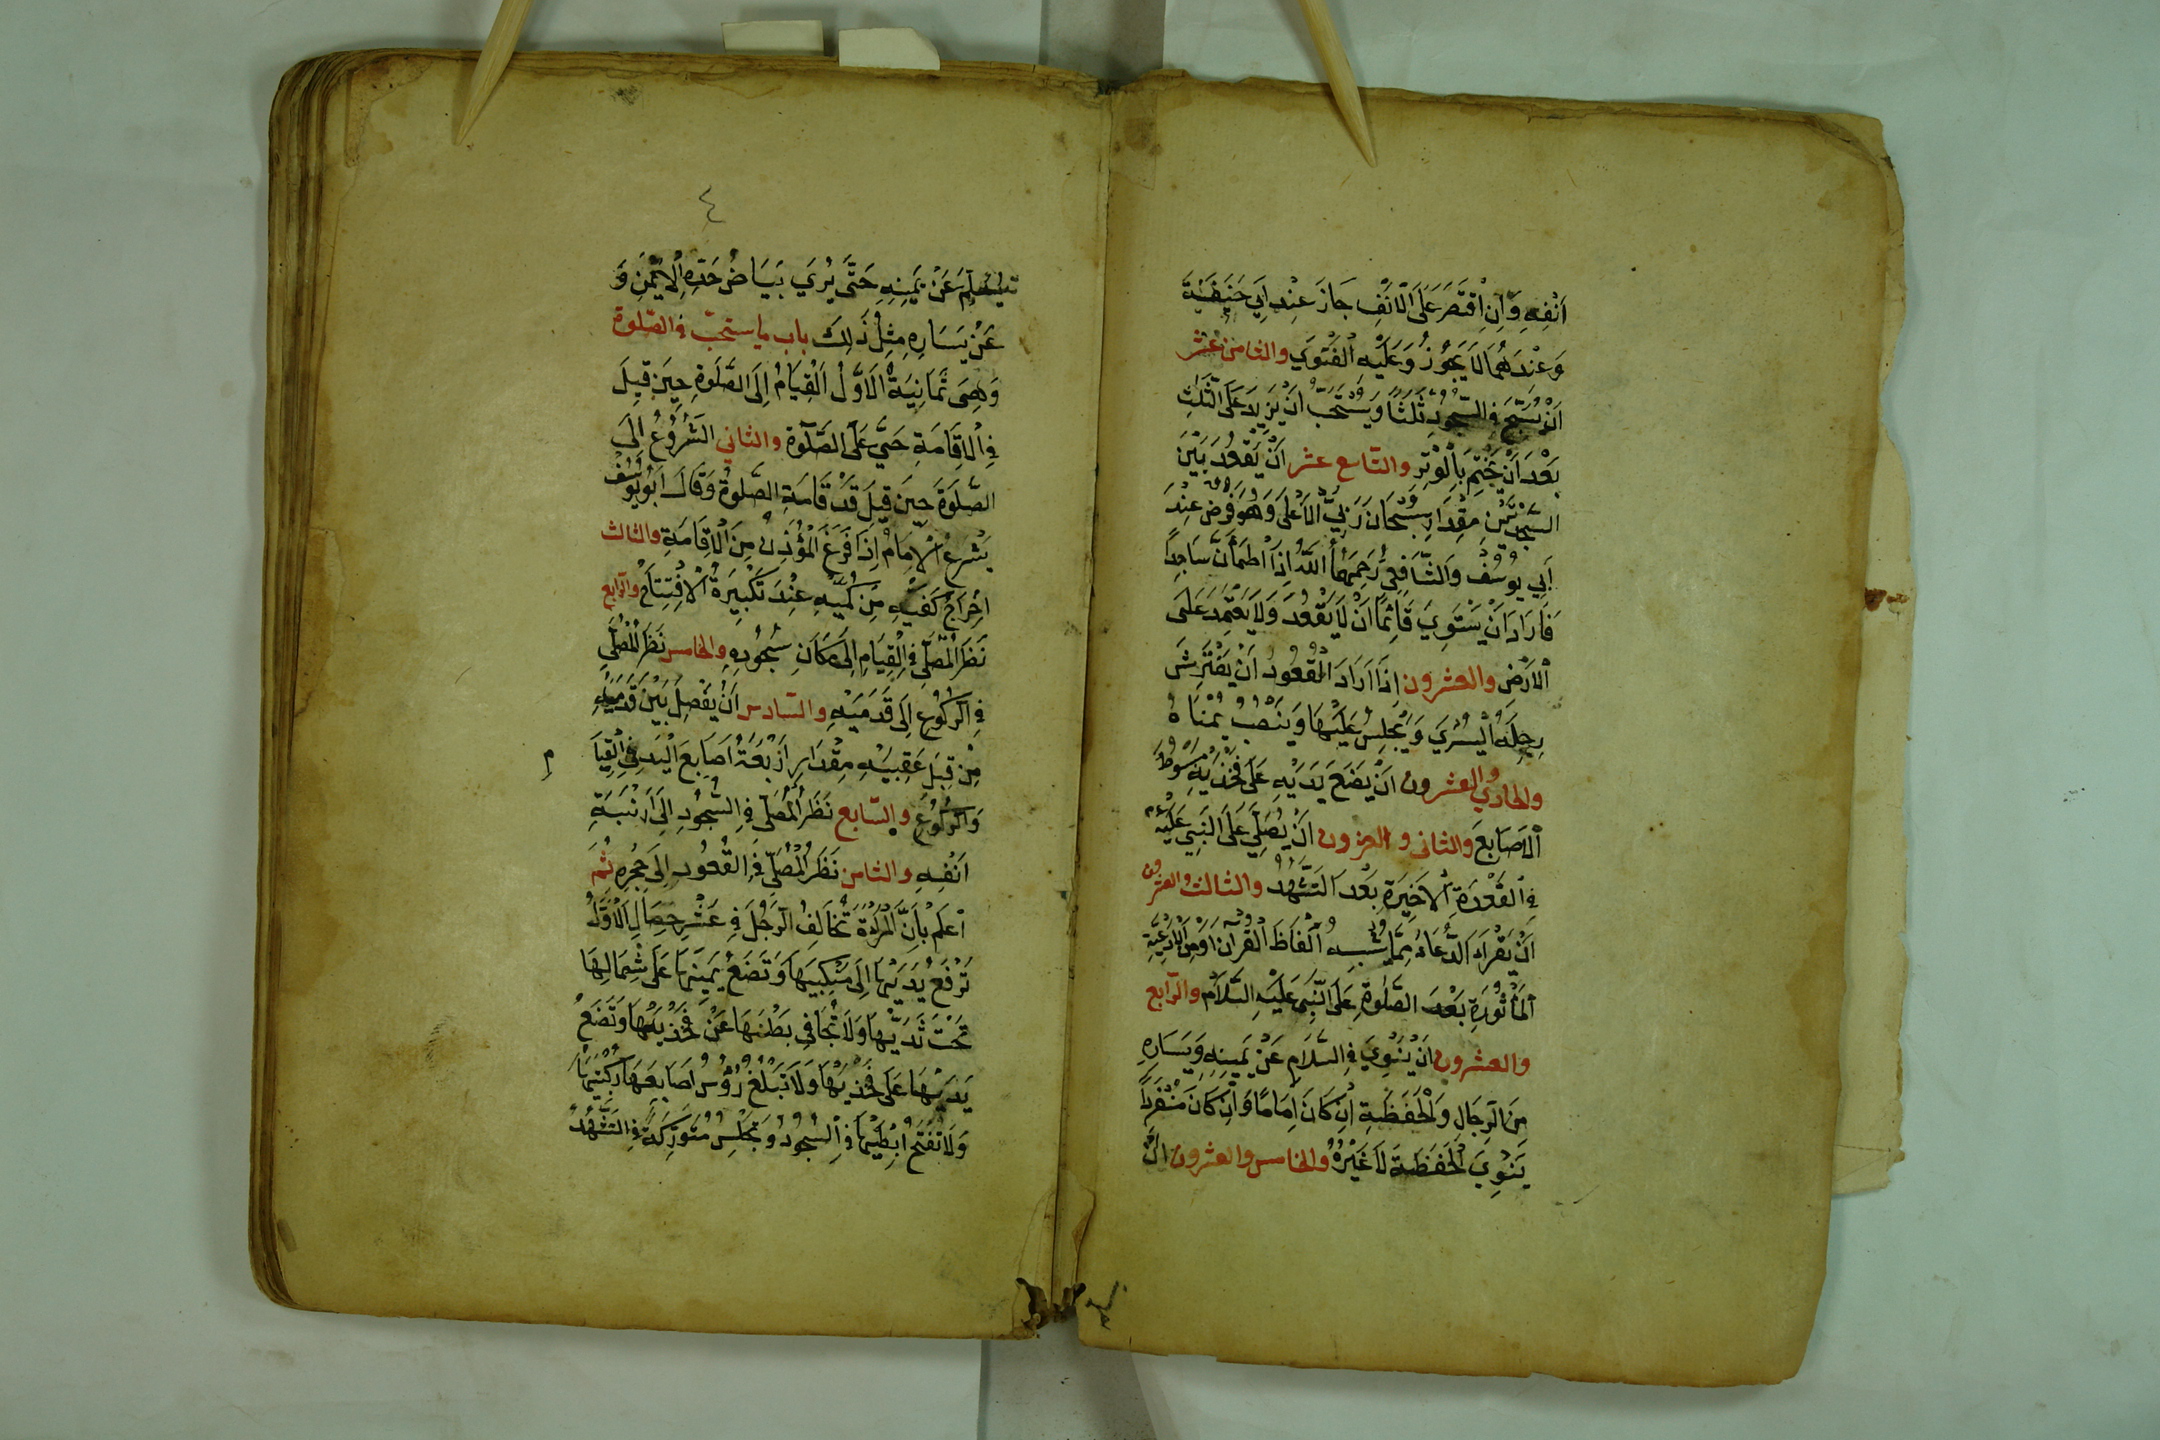 اَنْفِهِ وَاِنِ اقْتَصَرَ عَلَى الْاَنْفِ جَازَ عِنْدَ اَبِي حَنِيفَةَ
وَعِنْدَهُمَا لَا يَجُوزُ وَعَلَيْهِ الْفَتْوَي والثامن عشر
اَنْ يُسَبِّحَ فِي السُّجُودِ ثَلَثًا وَيَسْتَحِبُّ اَنْ يَزِيدَ عَلَى الثَّلَثِ
بَعْدَ اَنْ يَخْتِمَ بِالْوِتْرِ والتاسع عشر اَنْ يَقْعُدَ بَيْنَ
السَّجْدَتَيْنِ مِقْدَارَ سُبْحَانَ رَبِّيَ الْاَعْلَى وَهُوَ فَرْضٌ عِنْدَ
اَبِي يُوسُفَ وَالشَّافِعِي رَحِمَهُمَا اللّٰهُ اِذَا اطْمَأَنَّ سَاجِدًا
فَاَرَادَ اَنْ يَسْتَوِيَ قَائِمًا اَنْ لَا يَقْعُدَ وَلَا يَعْتَمِدَ عَلَى
الْاَرْضِ والعشرون اِذَا اَرَادَ الْقُعُودَ اَنْ يَفْتَرِشَ
رِجْلَهُ الْيُسْرَي وَيَجْلِسَ عَلَيْهَا وَيَنْصُبَ يُمْنَاهُ
والحادي والعشرون اَنْ يَضَعَ يَدَيْهِ عَلَى فَخْذَيْهِ مَبْسُوطَ
الْاَصَابِعِ والثاني و العزون اَنْ يُصَلِّيَ عَلَى النَّبِيِّ عَلَيْهِ
فِي الْقَعْدَةِ الْاَخِيرَةِ بَعْدَ التَّشَهُّدِ والثالث والعشرون
اَنْ يَقْرَاءَ الدُّعَاءَ مِمَّا يُشْبِهُ اَلْفَاظَ الْقُرْآنِ اَوْ مِنَ الْاَدْعِيَةِ
الْمَأْثُورَةِ بَعْدَ الصَّلٰوةِ عَلَى النَّبِيِّ عَلَيْهِ السَّلَامُ والرابع
والعشرون اَنْ يَنْوِيَ فِي السَّلَامِ عَنْ يَمِينِهِ وَيَسَارِهِ
مِنَ الرِّجَالِ وَالْحَفَظَةِ اِنْ كَانَ اِمَامًا وَاِنْ كَانَ مُنْفَرِدًا
يَنْوِيَ الْحَفَظَةَ لَا غَيْرُهُ والخامس والعشرون اَنْ
٤
عَنْ يَمِينِهِ حَتَّى يُرَي بَيَاضُ خَدِّهِ الْاَيْمَنِ وَ
عَنْ يَسَارِهِ مِثْلُ ذَلِكَ باب ما يستحب في الصلوة
وَهِيَ ثَمَانِيَةٌ اَلْاَوَّلُ اَلْقِيَامُ اِلَى الصَّلَوةِ حِينَ قِيلَ
فِي الْاِقَامَةِ حَيَّ عَلَى الصَّلَوةِ والثاني الشُّرُوعُ اِلَى
الصَّلَوةِ حِينَ قِيلَ قَدْ قَامَةِ الصَّلَوةُ وَقَالَ اَبُو يُوسُفَ
يَشْرَعُ الْاِمَامُ اِذَا فَرَغَ الْمُؤَذِّنُ مِنَ الْاِقَامَةِ والثالث
اِخْرَاجُ كَفَّيْهِ مِنْ كُمَّيْهِ عِنْدَ تَكْبِيرَةِ الْاِفْتِتَاحِ والرابع
نَظَرُ الْمُصَلِّي فِي الْقِيَامِ اِلَى مَكَانِ سُجُودِهِ والخامس نَظَرُ الْمُصَلِّي
فِي الرُّكُوعِ اِلَى قَدَمَيْهِ والسادس اَنْ يَفْصِلَ بَيْنَ قَدَمَيْهِ
مِنْ قِبَلِ عَقِبَيْهِ مِقْدَارِ اَرْبَعَةُ اَصَابِعَ الْيَدِ فِي الْقِيَا
م
وَالرُّكُوعِ والسابع نَظَرُ الْمُصَلِّي فِي السُّجُودِ اِلَى اَرْنَبَةِ
اَنْفِهِ والثامن نَظَرُ الْمُصَلِّي فِي الْقُعُودِ اِلَى حِجْرِهِ ثُمَّ
اعْلَمْ بِاَنَّ الْمَرْءَةَ تُخَالِفُ الرَّجُلَ فِي عَشْرِ خِصَالٍ اَلْاَوَّلُ
تَرْفَعُ يَدَيْهَا اِلَى مَنْكِبَيْهَا وَتَضَعُ يَمِينَهَا عَلَى شِمَالِهَا
تَحْتَ ثَدَيَيْهَا وَلَا تُجَافِي بَطْنَهَا عَنْ فَخْذَيْهَا وَتَضَعُ
يَدَيْهَا عَلَى فَخْذَيْهَا وَلَا تَبْلُغُ رُؤُسُ اَصَابِعِهَا رُكْبَتَيْهَا
وَلَا تَفْتَحُ اِبْطَيْهَا فِي السُّجُودِ وَتَجْلِسُ مُتَوَرِّكَةً فِي التَّشَهُّدِ